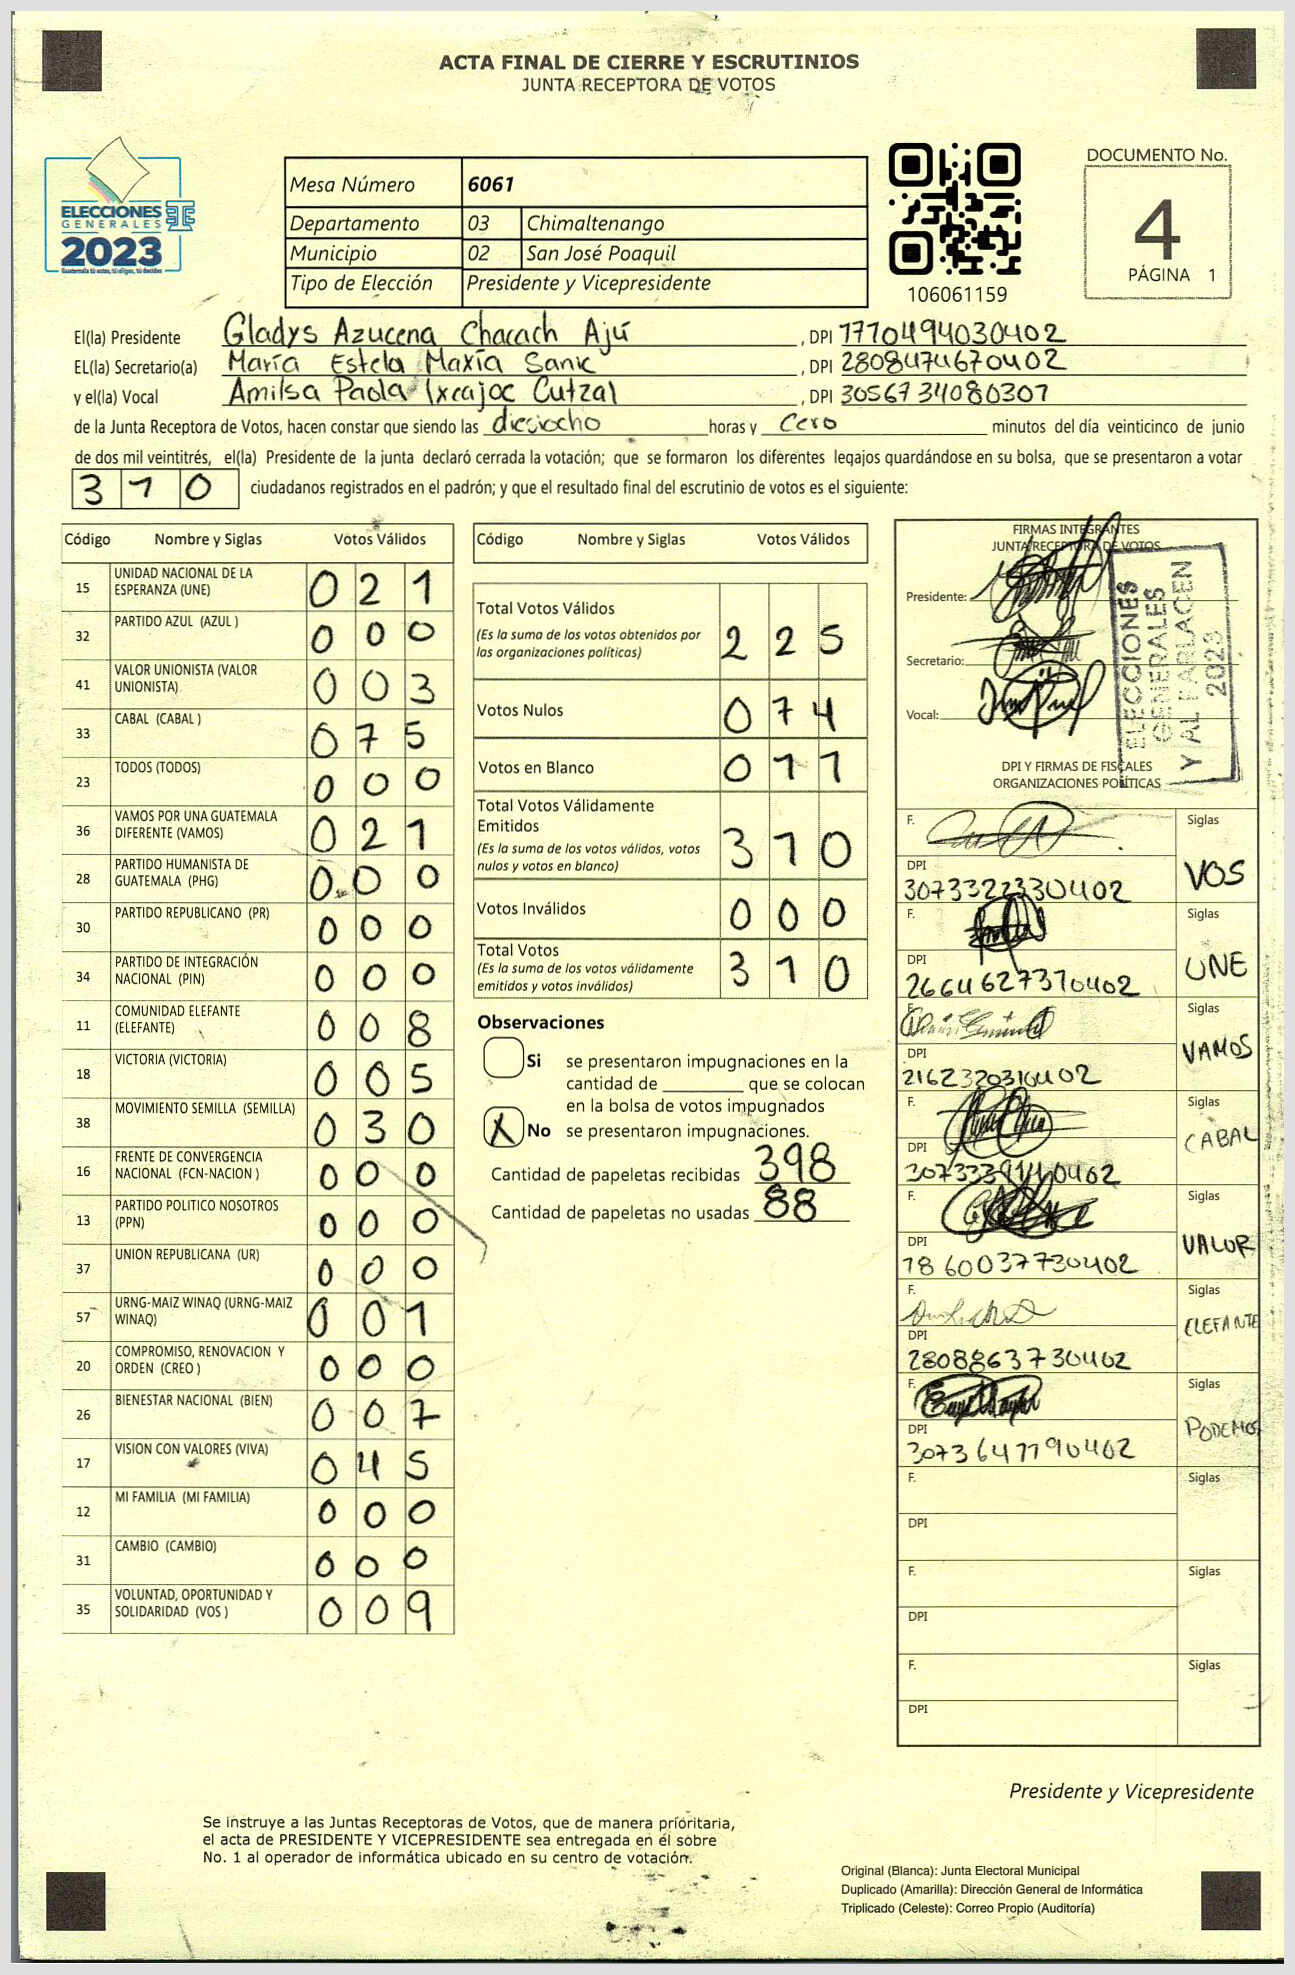 ACTA FINAL DE CIERRE Y ESCRUTINIOS
JUNTA RECEPTORA DE VOTOS
ELECCIONES
GENERALES
2023
Guatemala tú votas, tú eliges, tú decides
Mesa Número 6061
Departamento 03 Chimaltenango
Municipio 02 San José Poaquil
Tipo de Elección Presidente y Vicepresidente
106061159
DOCUMENTO No.
4
PÁGINA 1
El(la) Presidente Gladys Azucena Chacach Ajú , DPI 1770494030402
EL(la) Secretario(a) María Estela Maxía Sanic , DPI 2808474670402
y el(la) Vocal Amilsa Paola Ixcajoc Cutzal , DPI 3056734080307
de la Junta Receptora de Votos, hacen constar que siendo las dieciocho horas y cero minutos del día veinticinco de junio
de dos mil veintitrés, el(la) Presidente de la junta declaró cerrada la votación; que se formaron los diferentes legajos guardándose en su bolsa, que se presentaron a votar
310 ciudadanos registrados en el padrón; y que el resultado final del escrutinio de votos es el siguiente:
Código Nombre y Siglas Votos Válidos
15 UNIDAD NACIONAL DE LA ESPERANZA (UNE) 021
32 PARTIDO AZUL (AZUL ) 000
41 VALOR UNIONISTA (VALOR UNIONISTA) 003
33 CABAL (CABAL ) 075
23 TODOS (TODOS) 000
36 VAMOS POR UNA GUATEMALA DIFERENTE (VAMOS) 021
28 PARTIDO HUMANISTA DE GUATEMALA (PHG) 000
30 PARTIDO REPUBLICANO (PR) 000
34 PARTIDO DE INTEGRACIÓN NACIONAL (PIN) 000
11 COMUNIDAD ELEFANTE (ELEFANTE) 008
18 VICTORIA (VICTORIA) 005
38 MOVIMIENTO SEMILLA (SEMILLA) 030
16 FRENTE DE CONVERGENCIA NACIONAL (FCN-NACION ) 000
13 PARTIDO POLITICO NOSOTROS (PPN) 000
37 UNION REPUBLICANA (UR) 000
57 URNG-MAIZ WINAQ (URNG-MAIZ WINAQ) 001
20 COMPROMISO, RENOVACION Y ORDEN (CREO ) 000
26 BIENESTAR NACIONAL (BIEN) 007
17 VISION CON VALORES (VIVA) 045
12 MI FAMILIA (MI FAMILIA) 000
31 CAMBIO (CAMBIO) 000
35 VOLUNTAD, OPORTUNIDAD Y SOLIDARIDAD (VOS ) 009
Código Nombre y Siglas Votos Válidos
Total Votos Válidos 225
(Es la suma de los votos obtenidos por
las organizaciones políticas)
Votos Nulos 074
Votos en Blanco 011
Total Votos Válidamente
Emitidos 310
(Es la suma de los votos válidos, votos
nulos y votos en blanco)
Votos Inválidos 000
Total Votos 310
(Es la suma de los votos válidamente
emitidos y votos inválidos)
Observaciones
Si se presentaron impugnaciones en la
cantidad de ________ que se colocan
en la bolsa de votos impugnados
X No se presentaron impugnaciones.
Cantidad de papeletas recibidas 398
Cantidad de papeletas no usadas 88
FIRMAS INTEGRANTES
JUNTA RECEPTORA DE VOTOS
Presidente:
Secretario:
Vocal:
ELECCIONES
GENERALES
Y AL PARLACEN
2023
DPI Y FIRMAS DE FISCALES
ORGANIZACIONES POLÍTICAS
F. Siglas
DPI 3073322330402 VOS
F. Siglas
DPI 2664627370402 UNE
F. Siglas
DPI 2162320310402 VAMOS
F. Siglas
DPI CABAL
F. Siglas
DPI 1860037730402 VALOR
F. Siglas
DPI 2808863730402 ELEFANTE
F. Siglas
DPI 3073647790402 PODEMOS
F. Siglas
DPI
F. Siglas
DPI
F. Siglas
DPI
Presidente y Vicepresidente
Se instruye a las Juntas Receptoras de Votos, que de manera prioritaria,
el acta de PRESIDENTE Y VICEPRESIDENTE sea entregada en él sobre
No. 1 al operador de informática ubicado en su centro de votación.
Original (Blanca): Junta Electoral Municipal
Duplicado (Amarilla): Dirección General de Informática
Triplicado (Celeste): Correo Propio (Auditoría)